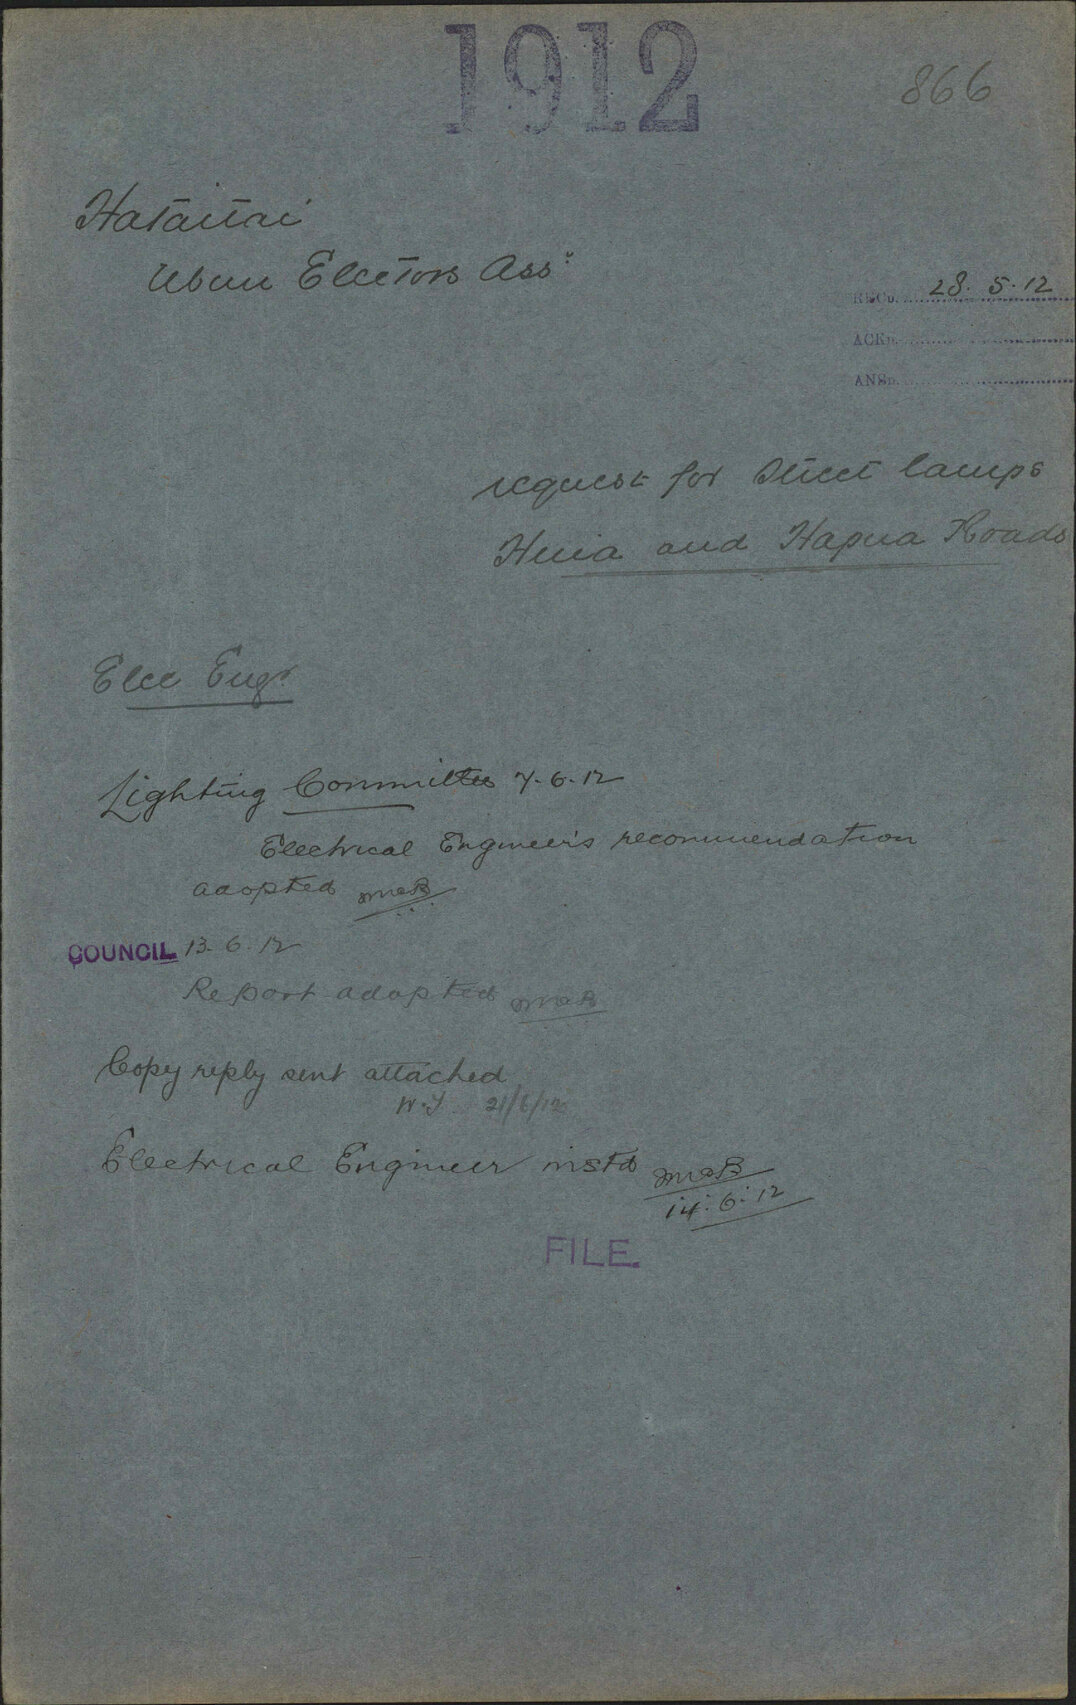 1912
866
Hataitai
Urban Electors Assn
RECD. 28. 5. 12
ACKD.
ANSD.
request for Street lamps
Huia and Hapua Roads
Elec Engr
Lighting Committee 7. 6. 12
Electrical Engineer's recommendation
adopted
COUNCIL 13. 6. 12
Report adopted
Copy reply sent attached
21/6/12
Electrical Engineer instd
14: 6: 12
FILE.